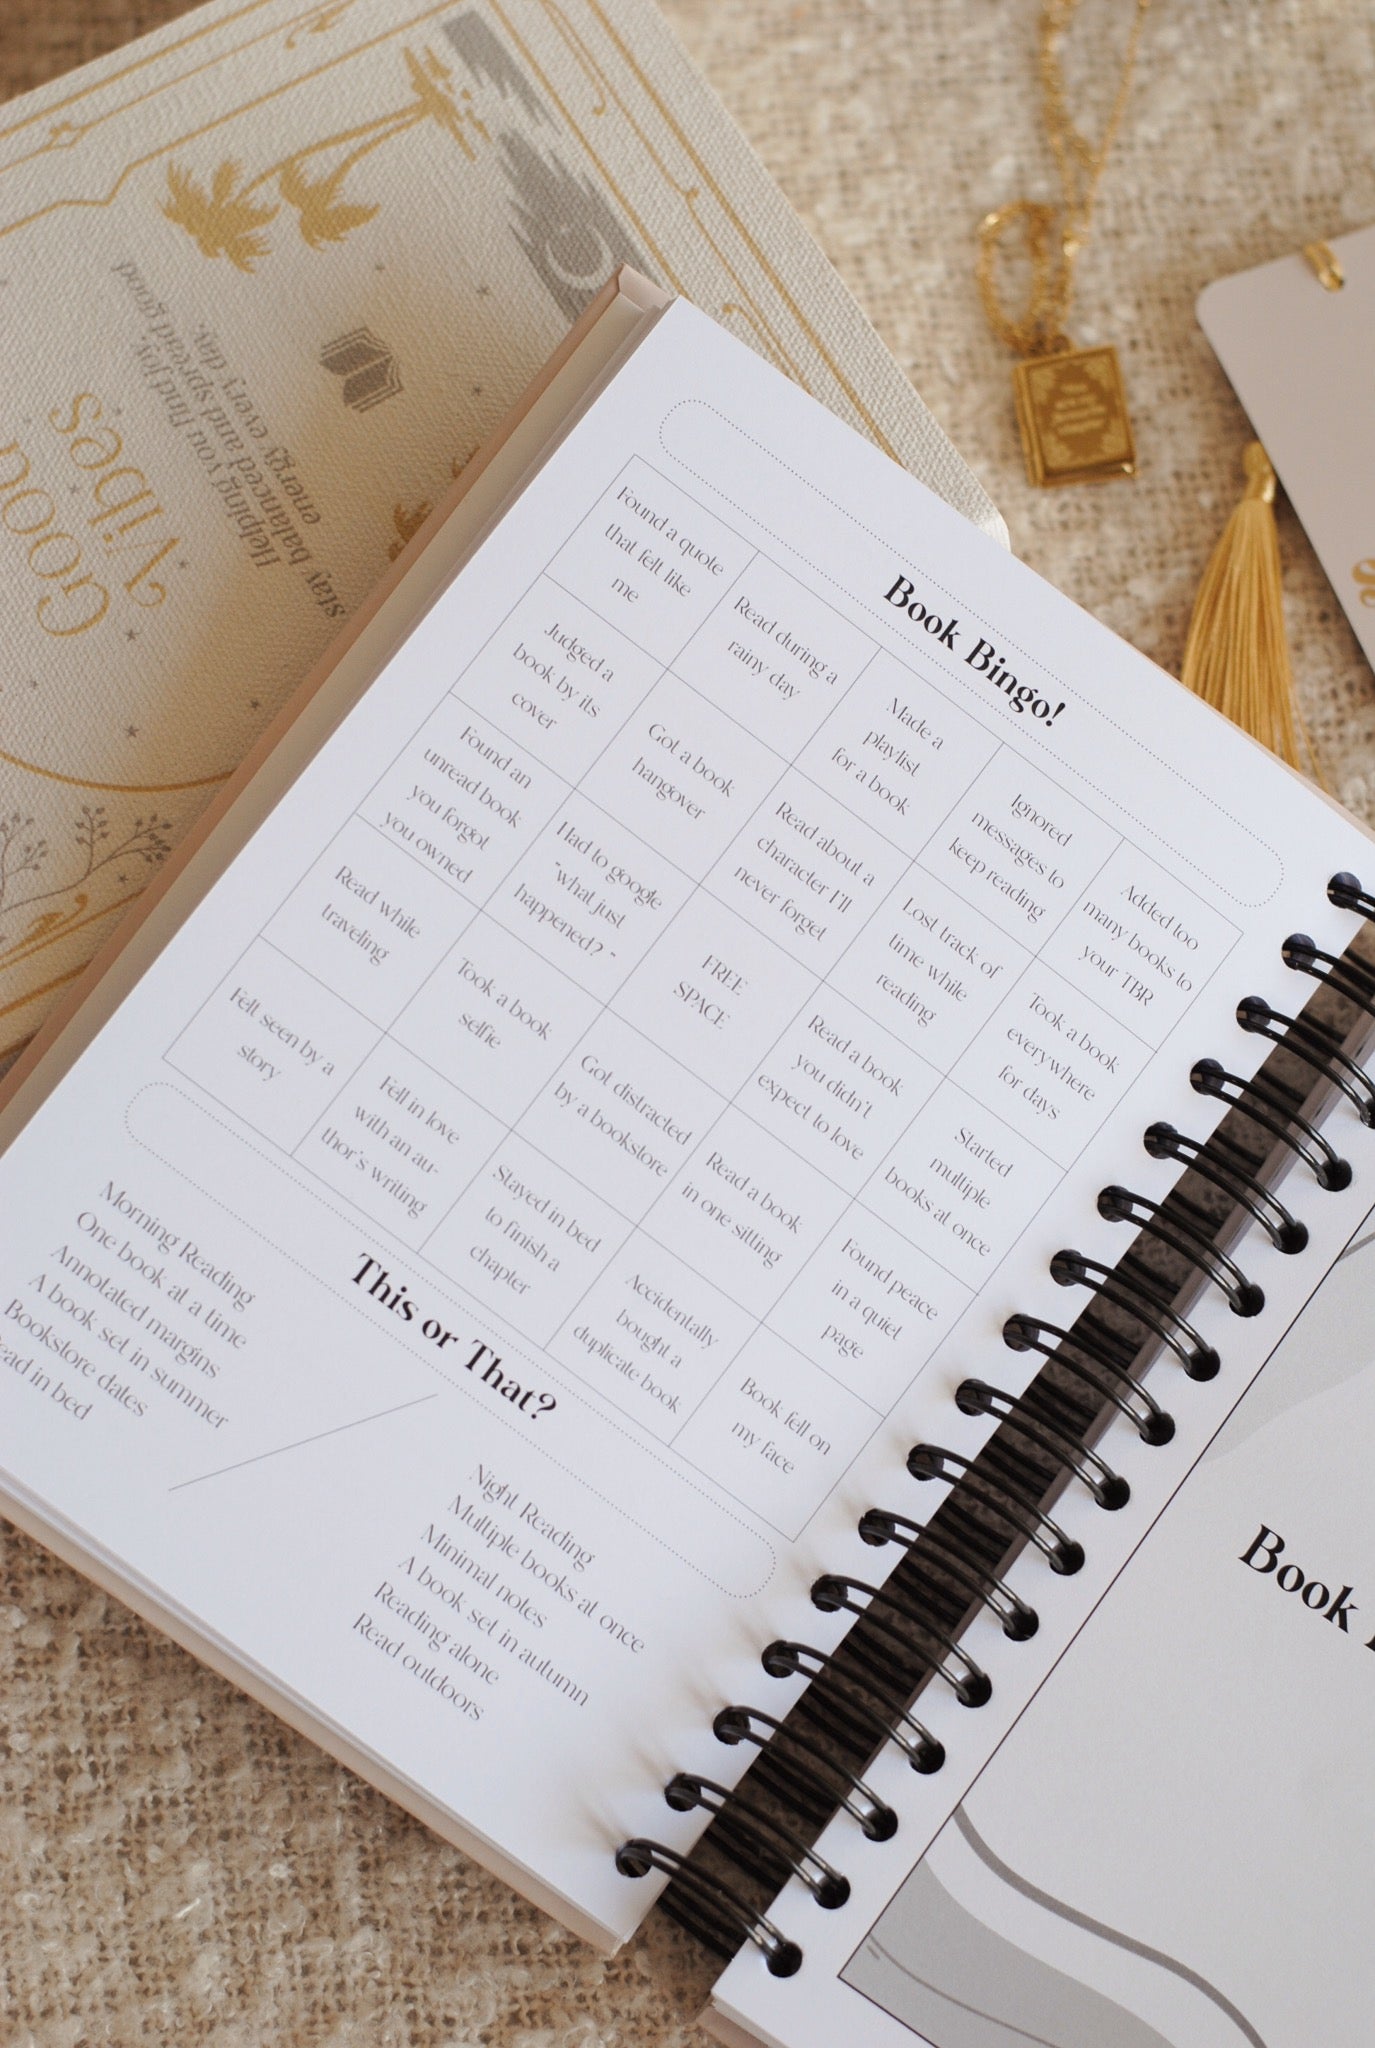 Book Bingo!
Found a quote
that felt like
me
Read during a
rainy day
Made a
playlist
for a book
Ignored
messages to
keep reading
Added too
many books to
your TBR
Judged a
book by its
cover
Got a book
hangover
Read about a
character I'll
never forget
Lost track of
time while
reading
Took a book
everywhere
for days
Found an
unread book
you forgot
you owned
Had to google
"what just
happened? "
FREE
SPACE
Read a book
you didn't
expect to love
Started
multiple
books at once
Read while
traveling
Took a book
selfie
Got distracted
by a bookstore
Read a book
in one sitting
Found peace
in a quiet
page
Felt seen by a
story
Fell in love
with an au-
thor's writing
Stayed in bed
to finish a
chapter
Accidentally
bought a
duplicate book
Book fell on
my face
This or That?
Morning Reading
One book at a time
Annotated margins
A book set in summer
Bookstore dates
ead in bed
Night Reading
Multiple books at once
Minimal notes
A book set in autumn
Reading alone
Read outdoors
Book
Good
Vibes
Helping you find joy,
stay balanced and spread good
energy every day.